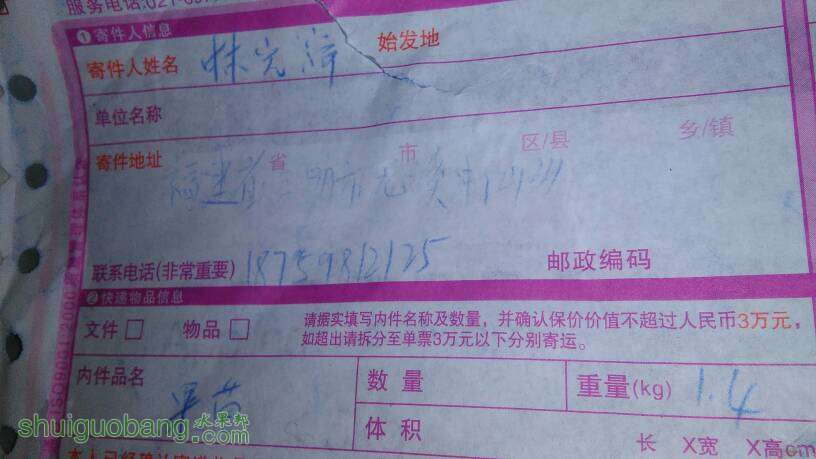 服务电话:021-
1 寄件人信息
寄件人姓名 林 始发地
单位名称
省 市 区/县 乡/镇
寄件地址
福建省三明市尤溪
联系电话(非常重要) 18759812125 邮政编码
2 快递物品信息
文件 物品 请据实填写内件名称及数量，并确认保价价值不超过人民币3万元，
如超出请拆分至单票3万元以下分别寄运。
内件品名 数量 重量(kg) 1.4
果苗
体积
长 X宽 X高cm
shuiguobang.com
水果邦